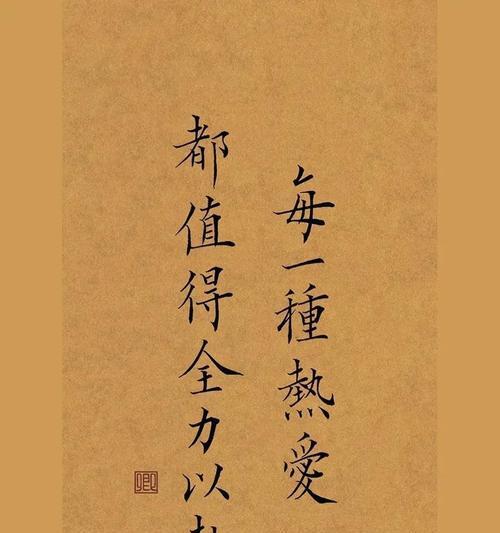 每一種熱愛
都值得全力以
卿